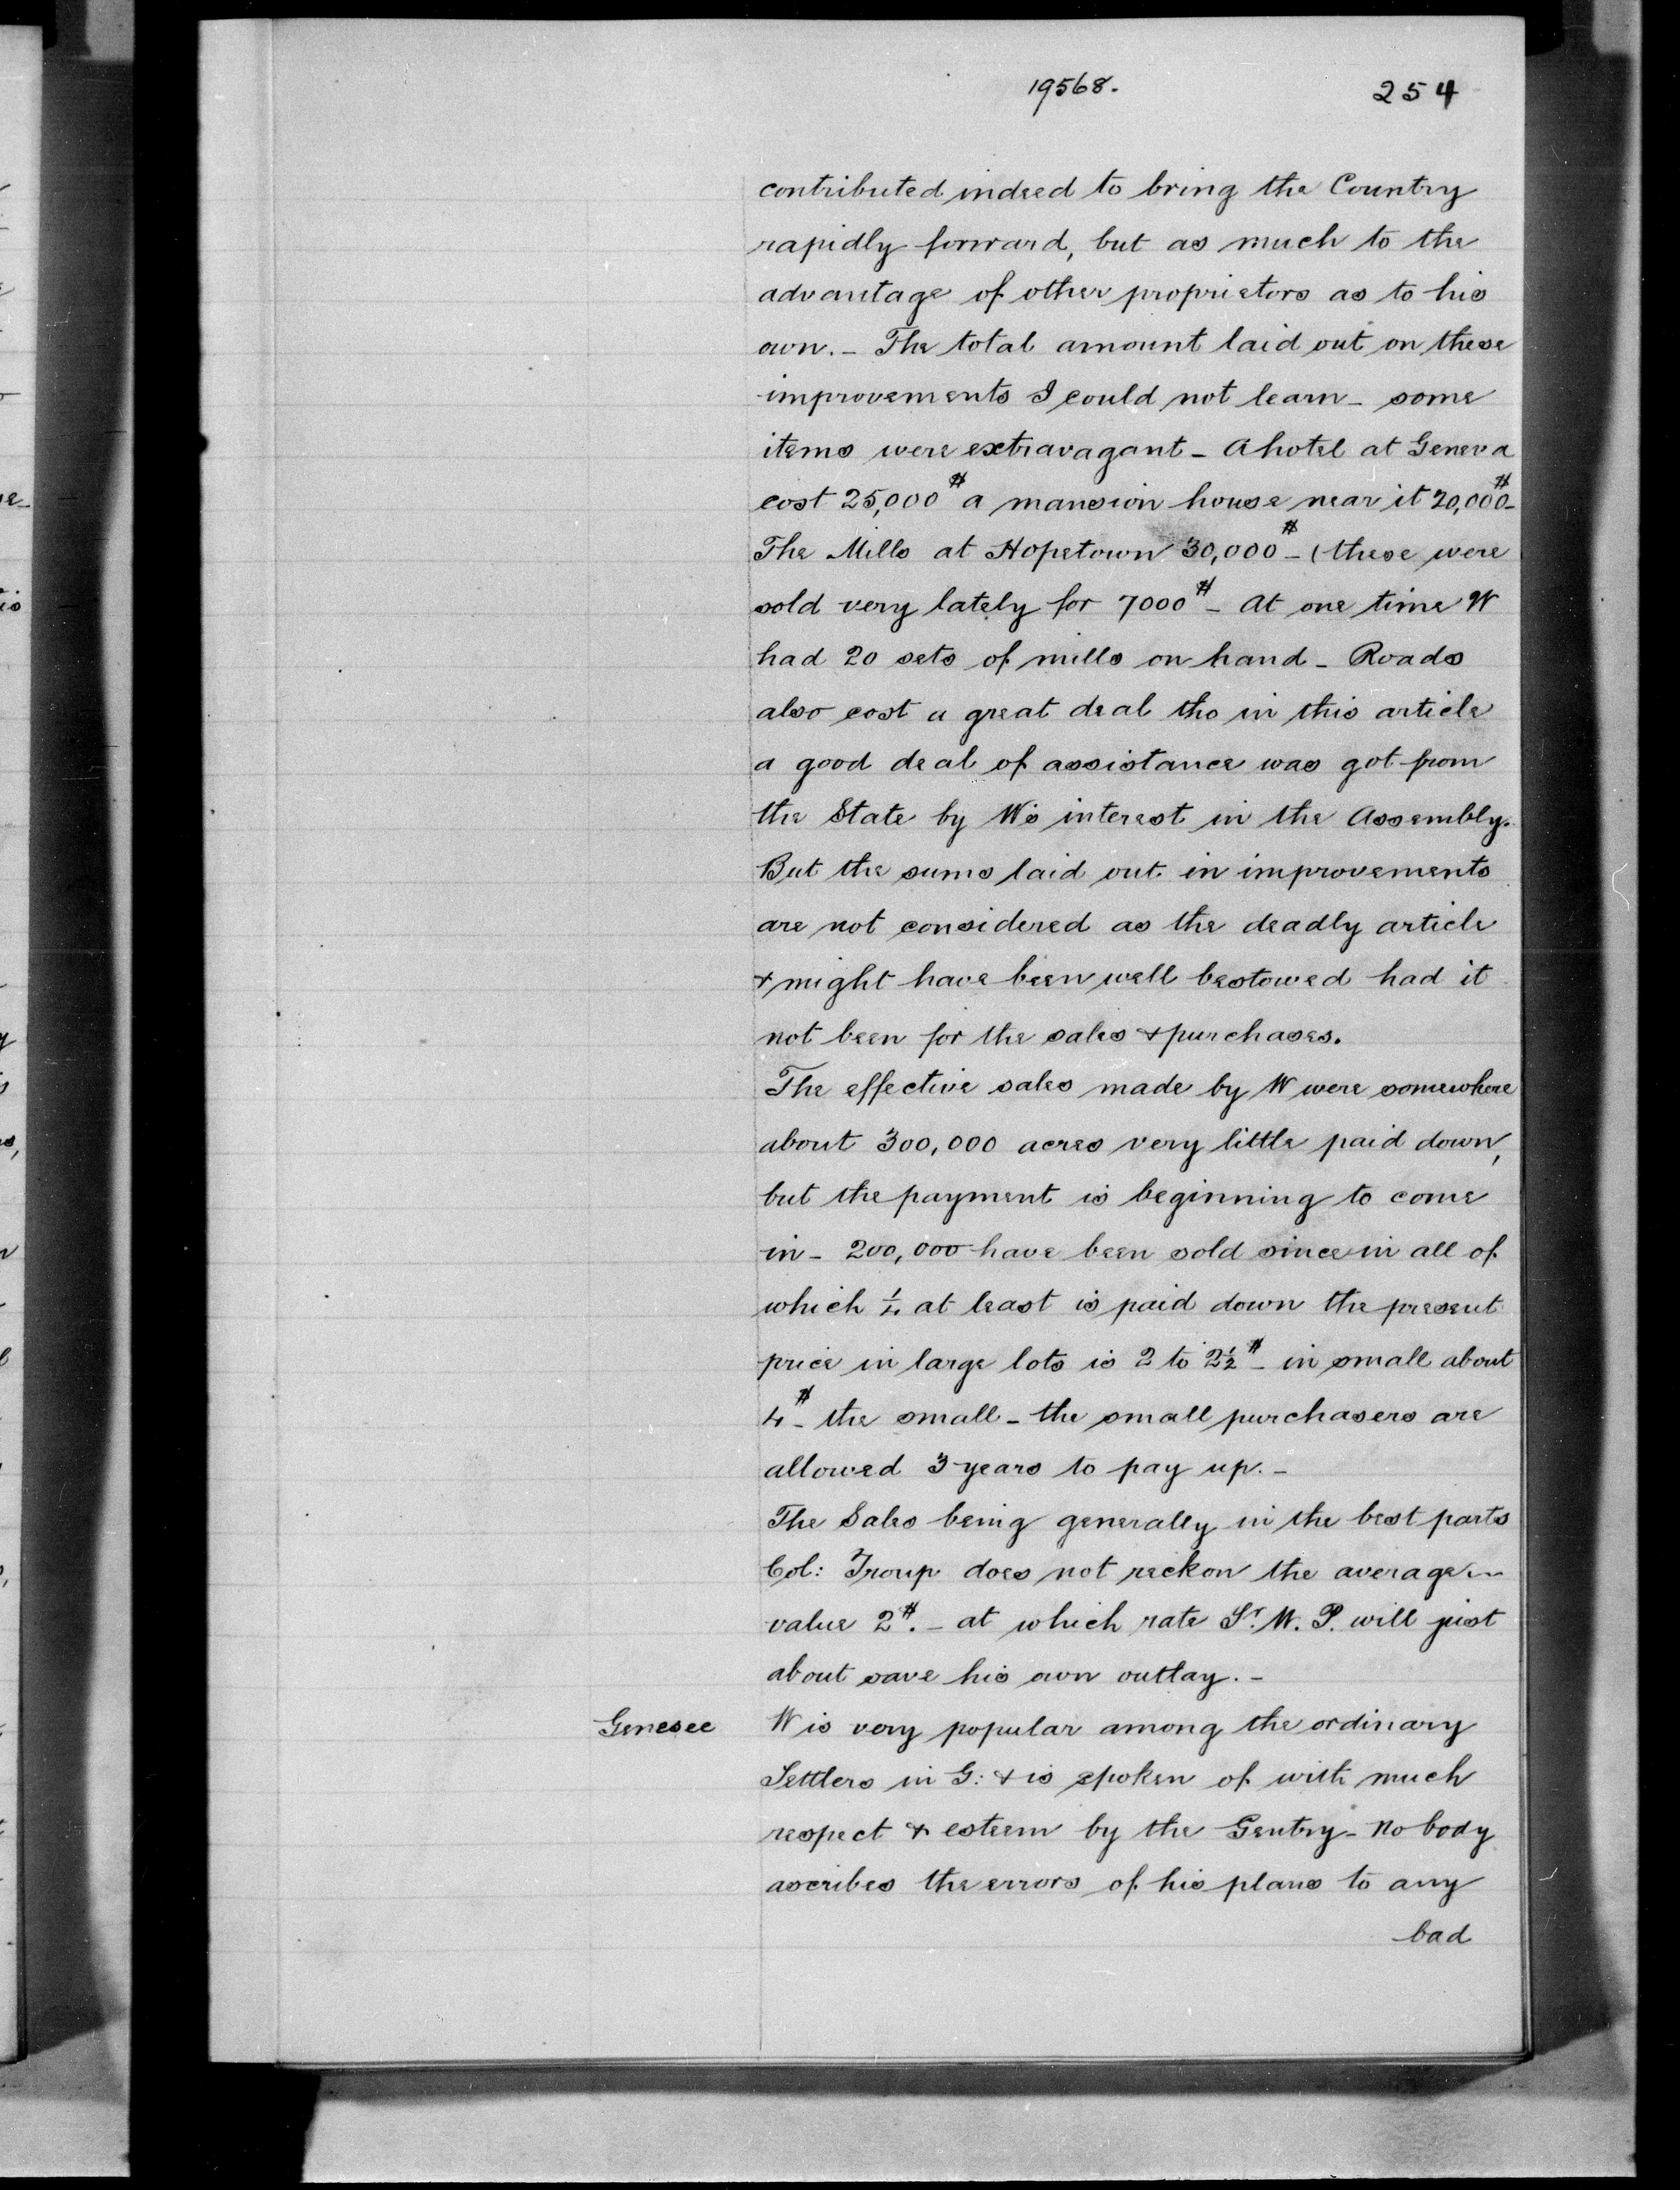 19568.
254
contributed indeed to bring the Country
rapidly forward, but as much to the
advantage of other proprietors as to his
own. – The total amount laid out on these
improvements I could not learn – some
items were extravagant – A hotel at Geneva
cost 25,000$ a mansion house near it 20,000$ –
The Mills at Hopetown 30,000$ – (these were
sold very lately for 7000$ – At one time W
had 20 sets of mills on hand – Roads
also cost a great deal tho in this article
a good deal of assistance was got from
the State by Ws interest in the Assembly.
But the sums laid out in improvements
are not considered as the deadly article
& might have been well bestowed had it
not been for the sales & purchases.
The effective sales made by W were somewhere
about 300,000 acres very little paid down,
but the payment is beginning to come
in – 200,000 have been sold since in all of
which ¼ at least is paid down the present
price in large lots is 2 to 2½$ – in small about
4$ – the small – the small purchasers are
allowed 3 years to pay up. –
The Sales being generally in the best parts
Col: Troup does not reckon the average
value 2$. – at which rate Sr. W. P. will just
about save his own outlay. –
Genesee W is very popular among the ordinary
Settlers in G: & is spoken of with much
respect & esteem by the Gentry – No body
ascribes the errors of his plans to any
bad